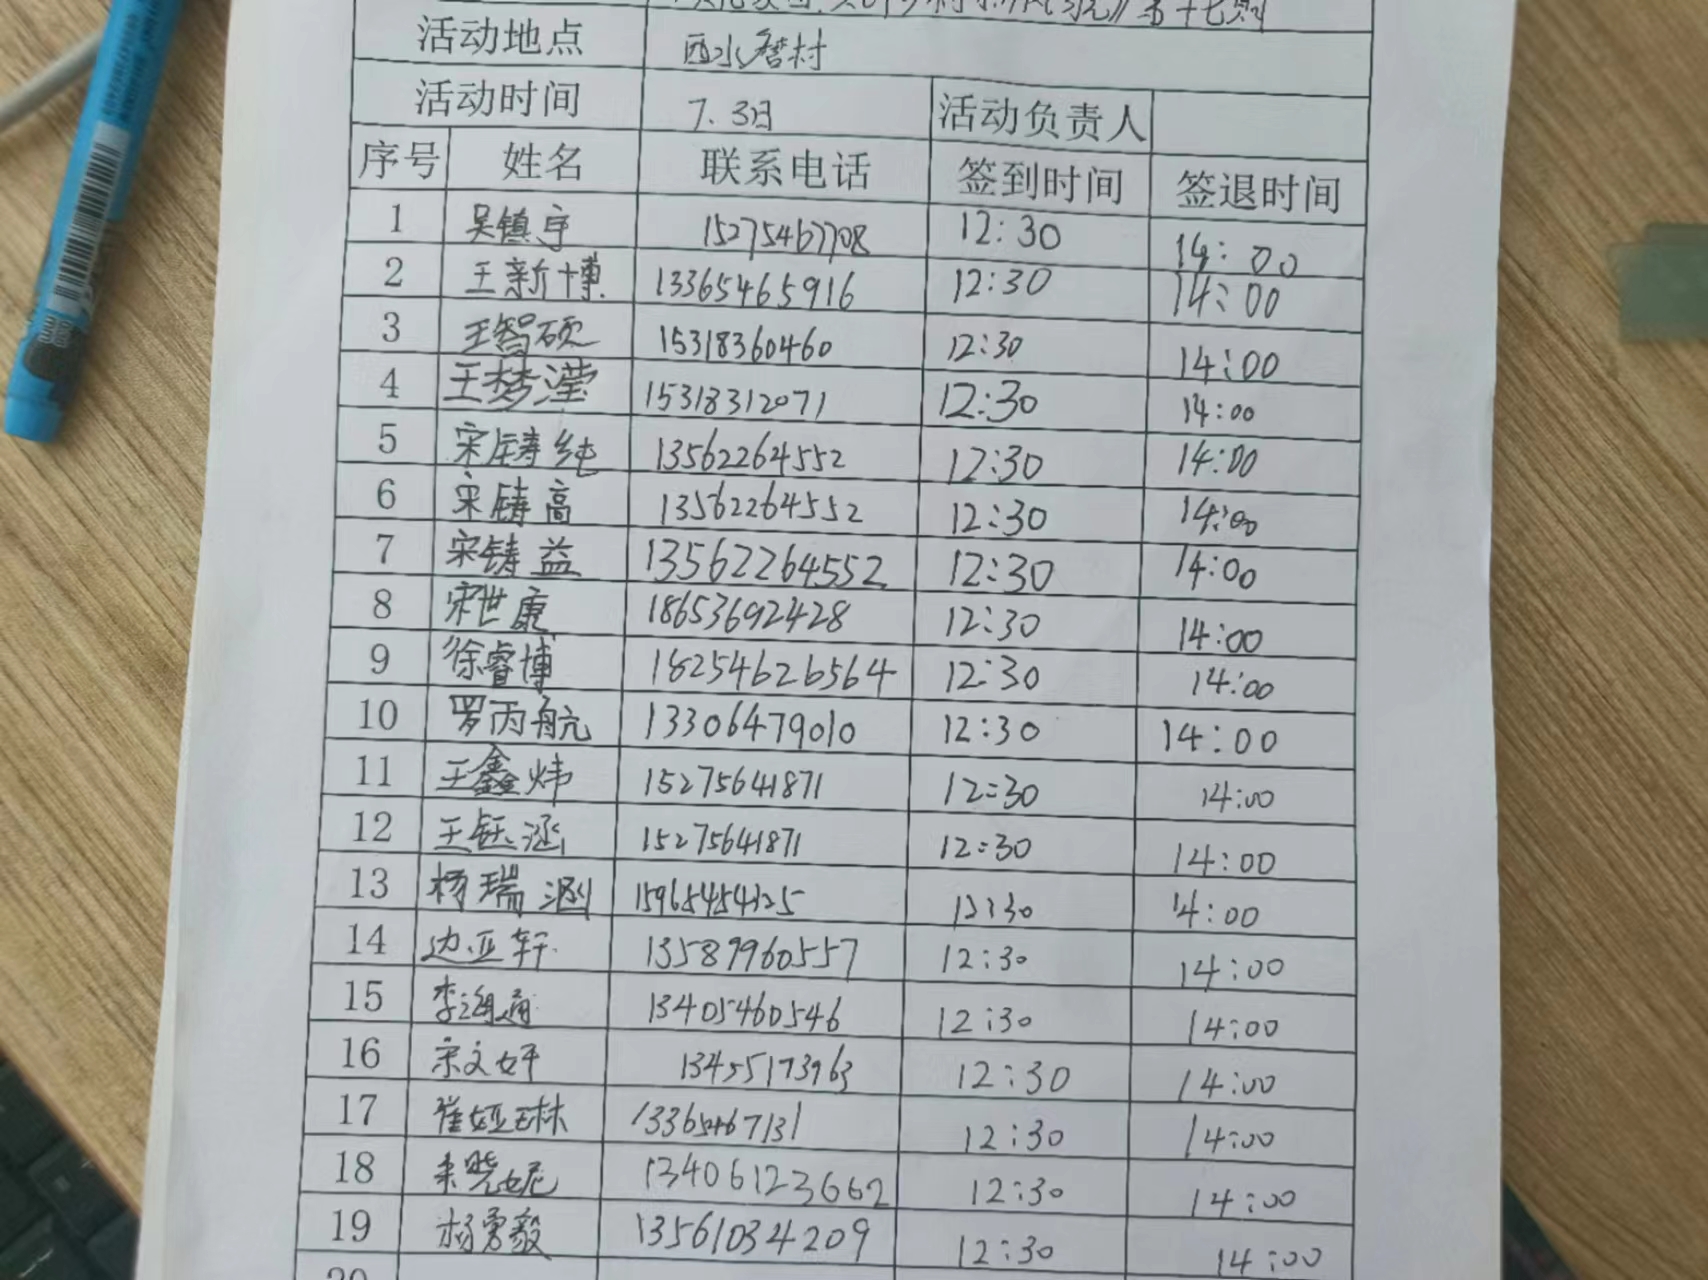 第十七期
活动地点 西水磨村
活动时间 7.3日 活动负责人
序号 姓名 联系电话 签到时间 签退时间
1 吴镇宇 15275467708 12:30 14:00
2 王新博 13365465916 12:30 14:00
3 王智硕 15318360460 12:30 14:00
4 王梦滢 15318312071 12:30 14:00
5 宋铸纯 13562264552 12:30 14:00
6 宋铸高 13562264552 12:30 14:00
7 宋铸益 13562264552 12:30 14:00
8 宋世康 18653692428 12:30 14:00
9 徐睿博 18254626564 12:30 14:00
10 罗丙航 13306479010 12:30 14:00
11 王鑫炜 15275641871 12:30 14:00
12 王钰涵 15275641871 12:30 14:00
13 杨瑞涵 15965454325 12:30 14:00
14 边亚轩 13589960557 12:30 14:00
15 李海通 13405460546 12:30 14:00
16 宋文妍 13455173963 12:30 14:00
17 崔娅琳 13365467131 12:30 14:00
18 晓妮 13406123662 12:30 14:00
19 杨勇毅 13561034209 12:30 14:00
20